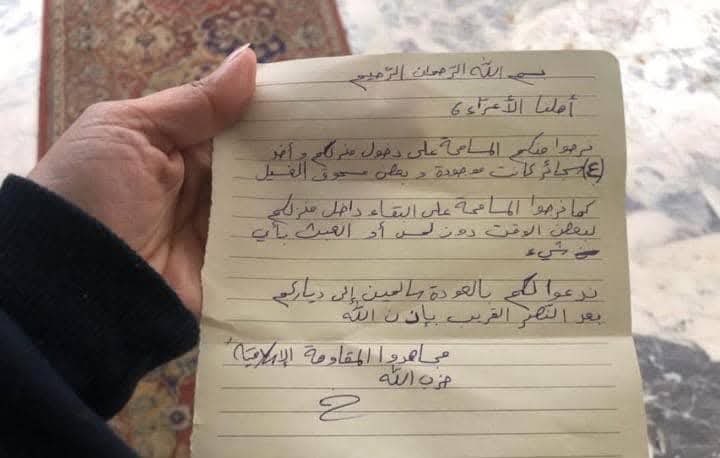 بسم الله الرحمان الرحيم
أهلنا الأعزاء،
نرجوا منكم المسامحة على دخول منزلكم و أخذ
(٤) سجائر كانت موجودة و بعض مسحوق الغسيل
كما نرجوا المسامحة على البقاء داخل منزلكم
لبعض الوقت دون لمس أو العبث بأي
شيء
ندعوا لكم بالعودة سالمين إلى دياركم
بعد النصر القريب بإذن الله
مجاهدوا المقاومة الإسلامية
حزب الله